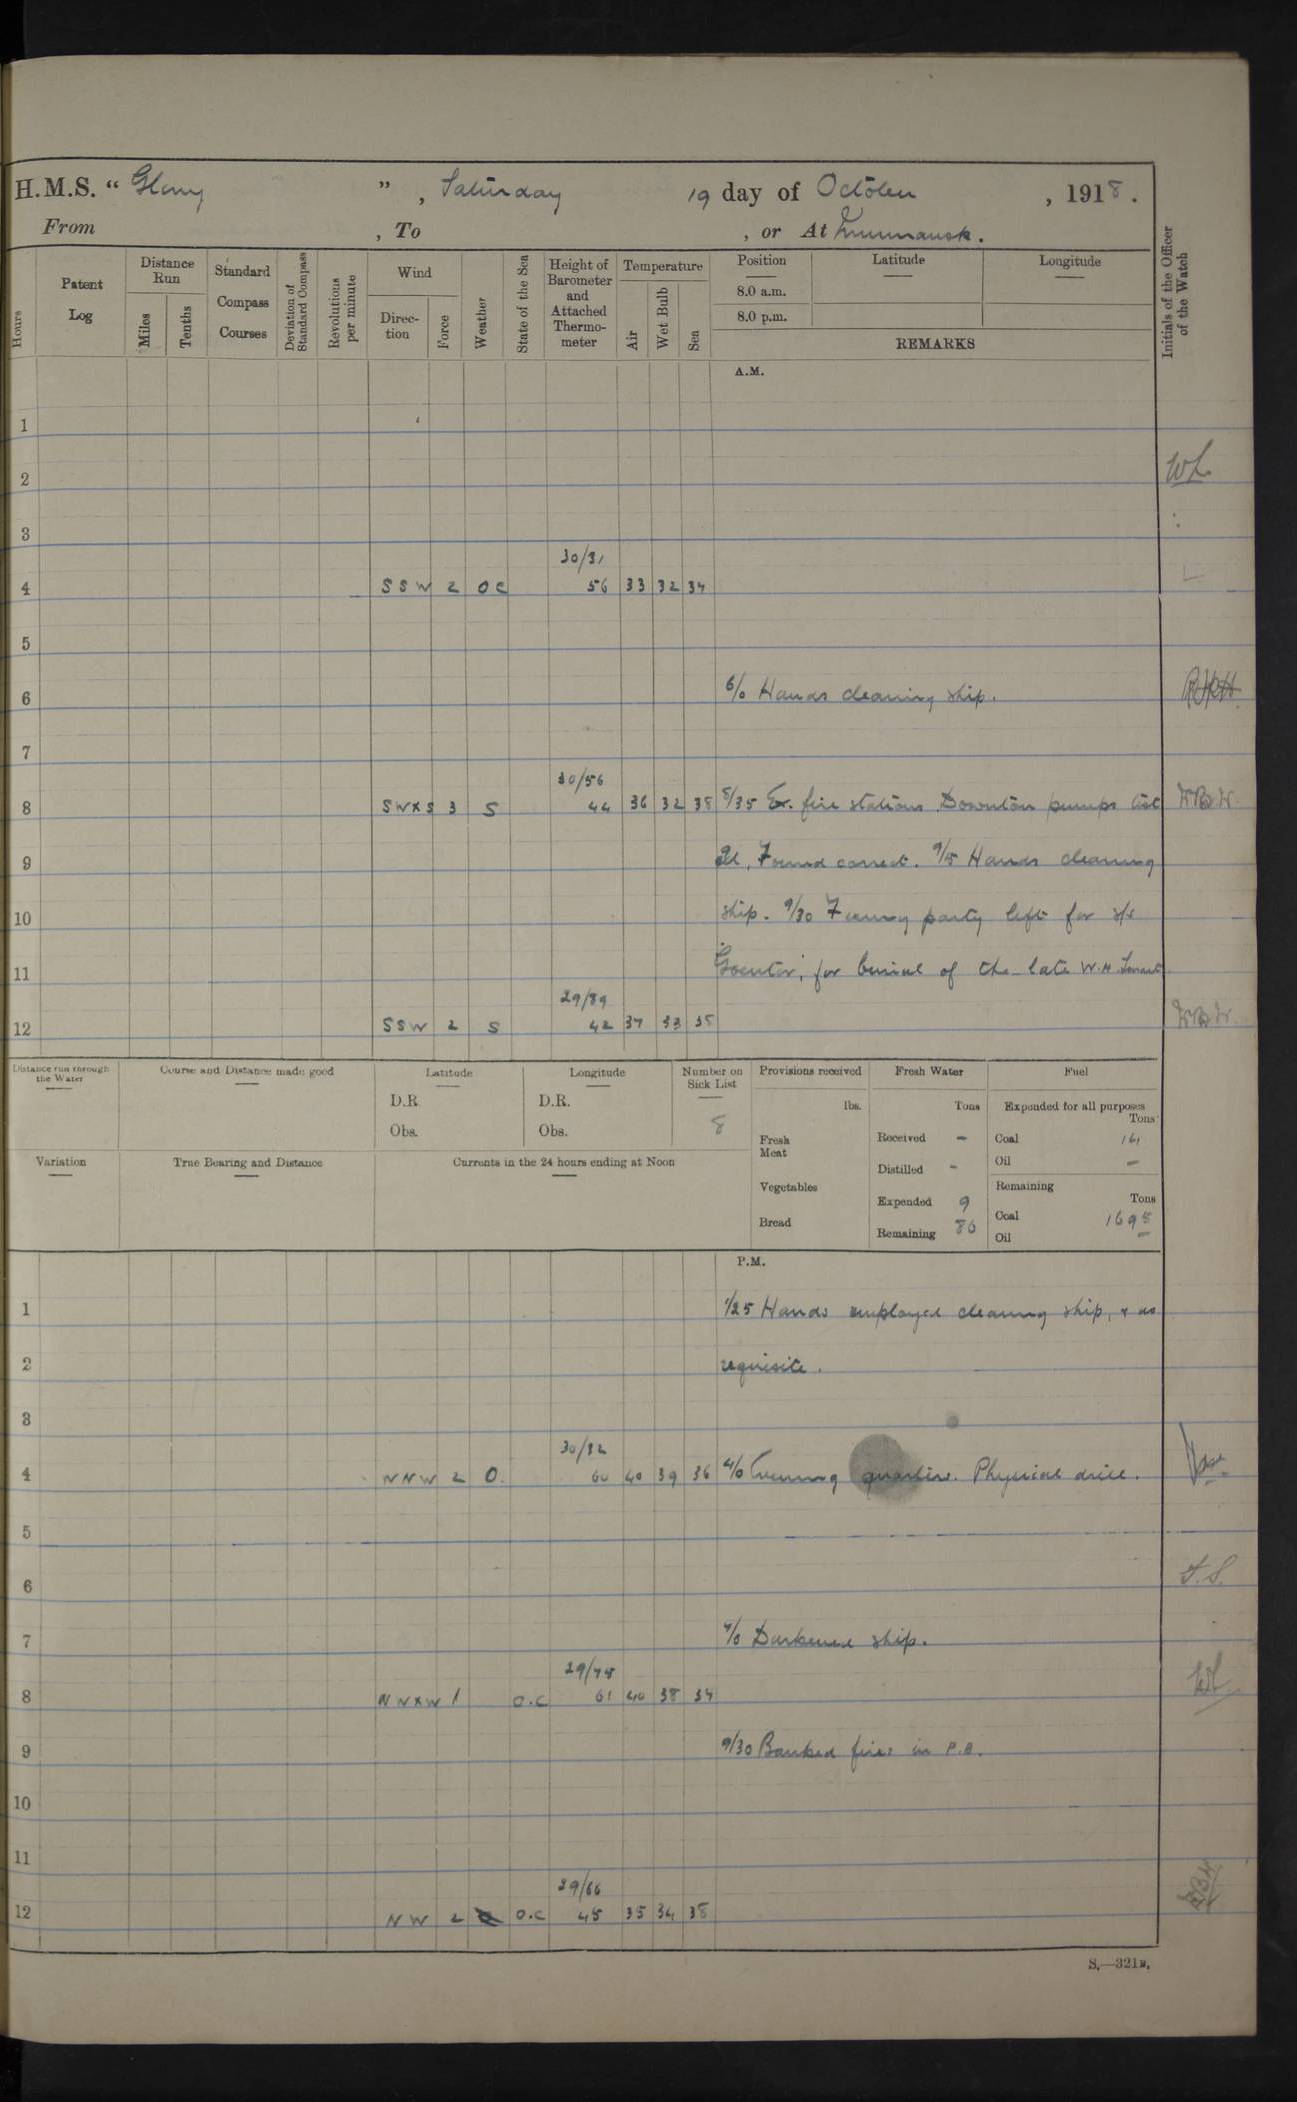 H.M.S. “ Glory ”, Saturday 19 day of October, 1918.
From , To , or At Murmansk.
Hours
Patent Log
Distance Run
Miles
Tenths
Standard Compass Courses
Deviation of Standard Compass
Revolutions per minute
Wind
Direction
Force
Weather
State of the Sea
Height of Barometer and Attached Thermometer
Temperature
Air
Wet Bulb
Sea
Position
8.0 a.m.
8.0 p.m.
Latitude
Longitude
REMARKS
Initials of the Officer of the Watch
A.M.
1
2 WL
3
30/31
4 SSW 2 OC 56 33 32 34
5
6 6/0 Hands cleaning ship.
7
30/56
8 SWxS 3 S 44 36 32 38 8/35 Ex. fire stations Downton pumps
9 Found correct. 9/15 Hands cleaning
10 ship. 9/30 party left for s/s
11 for burial of the late W.H.
29/89
12 SSW 2 S 42 37 33 35
Distance run through the Water
Course and Distance made good
Latitude
D.R.
Obs.
Longitude
D.R.
Obs.
Number on Sick List
8
Provisions received
lbs.
Fresh Meat
Vegetables
Bread
Fresh Water
Tons
Received -
Distilled -
Expended 9
Remaining 86
Fuel
Expended for all purposes
Tons
Coal 161
Oil —
Remaining
Tons
Coal 1695
Oil —
Variation
True Bearing and Distance
Currents in the 24 hours ending at Noon
P.M.
1 1/25 Hands employed cleaning ship, & as
2 requisite.
3
30/32
4 NNW 2 O. 60 40 39 36 4/0 Evening quarters. Physical drill.
5
6 T.S.
7 7/0 Darkened ship.
29/75
8 NWxW 1 O.C 61 40 38 34 WL
9 9/30 Banked fires in P.B.
10
11
29/66
12 NW 2 O.C 45 35 34 38
S.—321B.